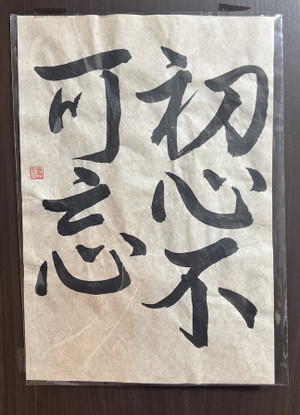 初心不
可忘